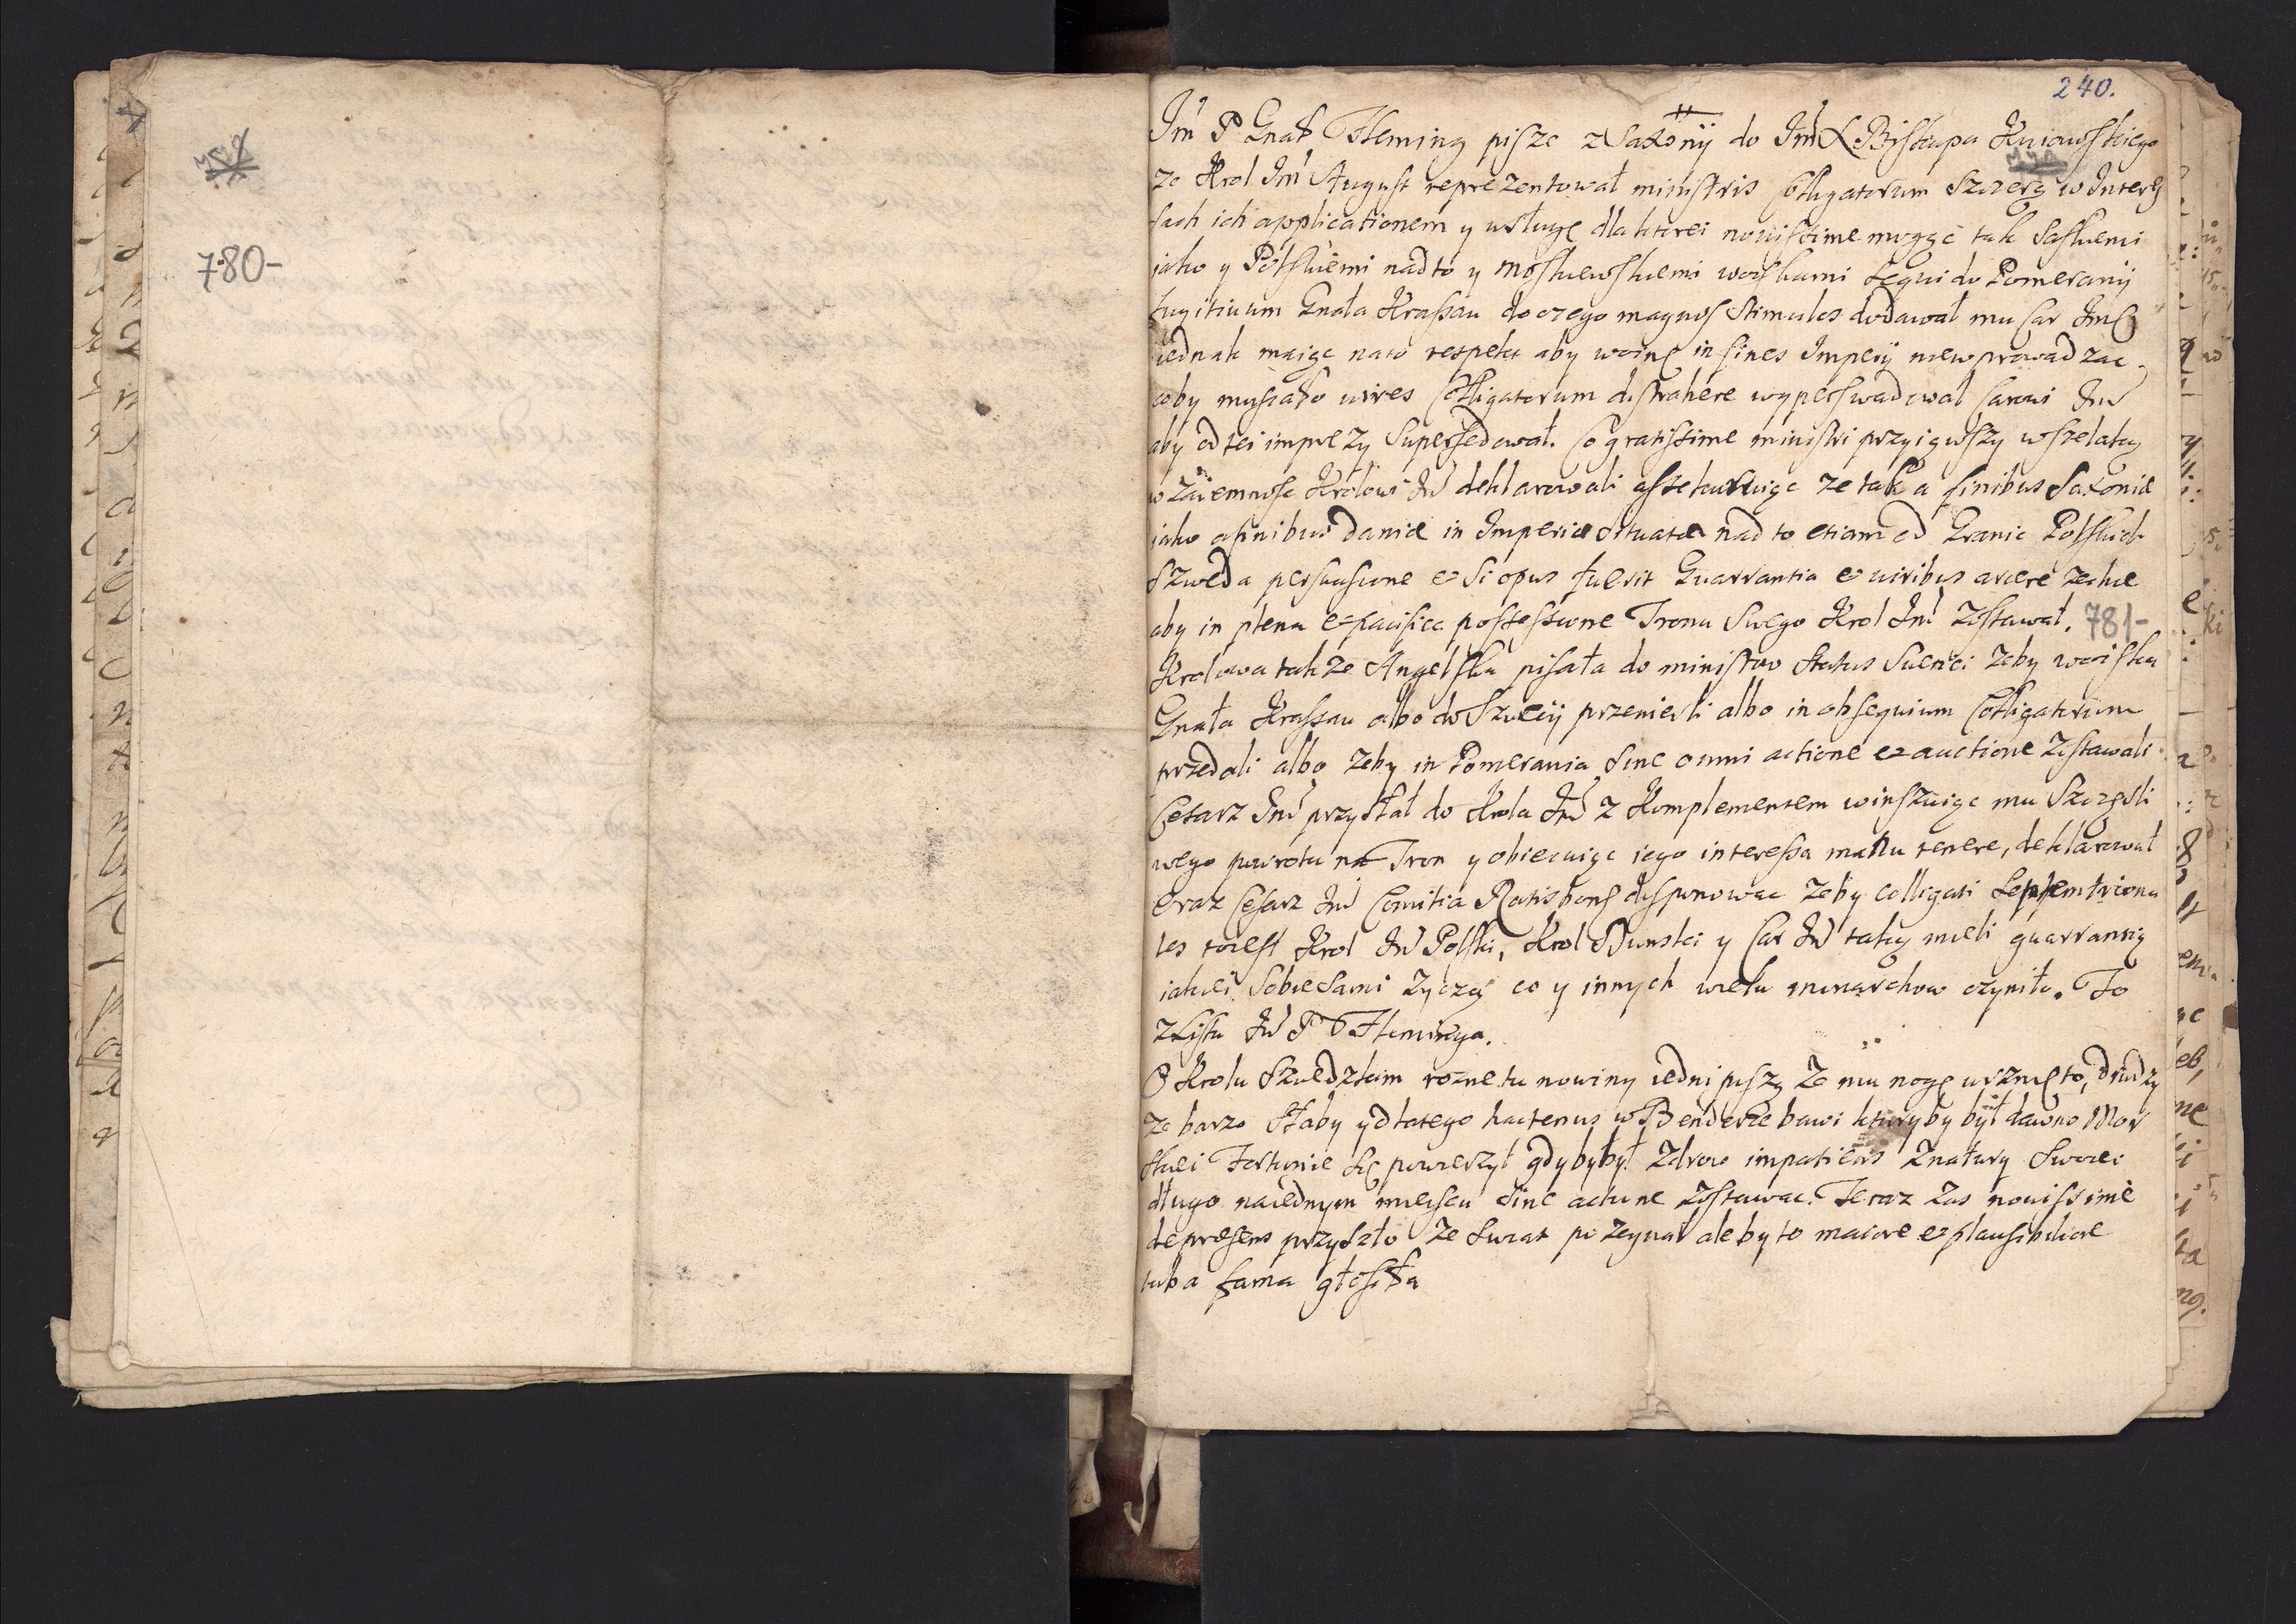 780-
240.
Jm̃ P Gnał Fleming pisze z Saxonij do Jm̃ X Biskupa Kuiawskiego
ze Krol Jm̃ August reprezentował ministris Colligatorum szczerą w Interes
sach ich applicationem y usługę dla ktorei novissime mogąc tak Saskiemi
iako y Polskiemi nad to y moskiewskiemi woyskami sequi do Pomeranij
fugitivum Gnała Krassau do czego magnos stimulos dodawał mu Car Jmć
iednak maiąc na to respekt aby woinę in fines Imperij niewprowadzac
coby musiało vires Colligatorum distrahere wyperswadował Carowi Jm̃
aby od tei imprezy supersedował. Co gratissime ministri przyiąwszy wszelaką
wzaiemnosc Krolowi Jm̃ deklarowali assekuruiąc ze tak a finibus Saxoniæ
iako a finibus Daniæ in Imperio situatæ nad to etiam od Granic Polskich
Szweda persuasione et si opus fuerit Guarrantia et viribus arcere zechcę
aby in plena et pacifica possessione Tronu swego Krol Jm̃ zostawał. 781-
Krolowa takze Angelska pisała do ministrow status Sueciæ zeby woiska
Gnała Krassau albo do Szwecij przeniesli albo in obsequium Colligatorum
przedali albo zeby in Pomerania sine omni actione et auctione zostawali
Cesarz Jm̃ przysłał do Krola Jm̃ z Komplementem winszuiąc mu szczęśli
wego powrotu na Tron y obiecuiąc iego interessa manu tenere, deklarował
oraz Cesarz Jm̃ Comitia Ratisbonę disponowac zeby colligati Septemtriona
les to iest Krol Jm̃ Polski, Krol Dunski y Car Jm̃ taką mieli guarrantią
iakiei sobie sami zyczą co y innych wielu monarchow czyniło. To
z Listu Jm̃ P Fleminga.
O Krolu Szwedzkim rozne tu nowiny iedni piszą ze mu nogę urznięto, drudzy
ze barzo słaby y dla tego hactenus w Benderze bawi ktoryby był dawno Mor
skiei Fortunie się powierzył gdyby był zdrow impatiens z natury swoiei
długo na iednym mieiscu sine actione zostawac. Teraz zas novissime
de præsens przyszło ze swiat pozegnał aleby to maiore et plausibiliore
tuba fama głosiła